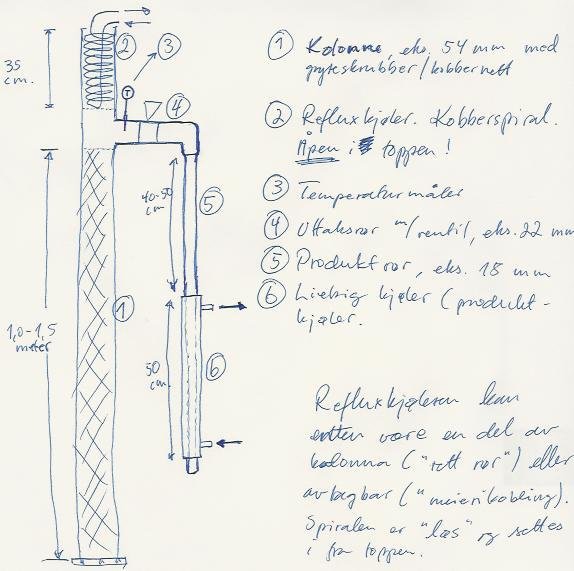 35
cm.
②
③
T
④
40-50
cm
⑤
①
1,0-1,5
meter
50
cm
⑥
① Kolonne, eks. 54 mm med
gryteskrubber/kobbernett
② Reflukskjøler. Kobberspiral.
Åpen i toppen!
③ Temperaturmåler
④ Uttaksrør m/ventil, eks. 22 mm
⑤ Produktrør, eks. 18 mm
⑥ Liebig kjøler (produkt-
kjøler.
Reflukskjøleren kan
enten være en del av
kolonna ("rett rør") eller
avtagbar ("meierikobling).
Spiralen er "løs" og settes
i fra toppen.